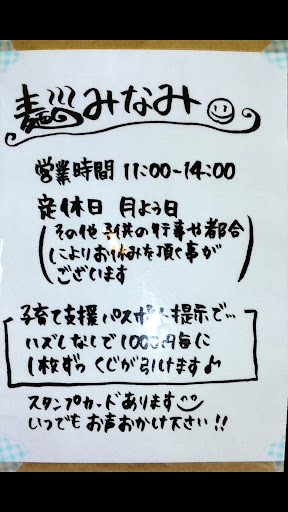 麺みなみ
営業時間 11:00~14:00
定休日 月よう日
(その他子供の行事や都合
によりお休みを頂く事が
ございます)
子育て支援パスポート提示で…
ハズレなしで1000円毎に
1枚ずつくじが引けます♪
スタンプカードあります
いつでもお声おかけ下さい!!